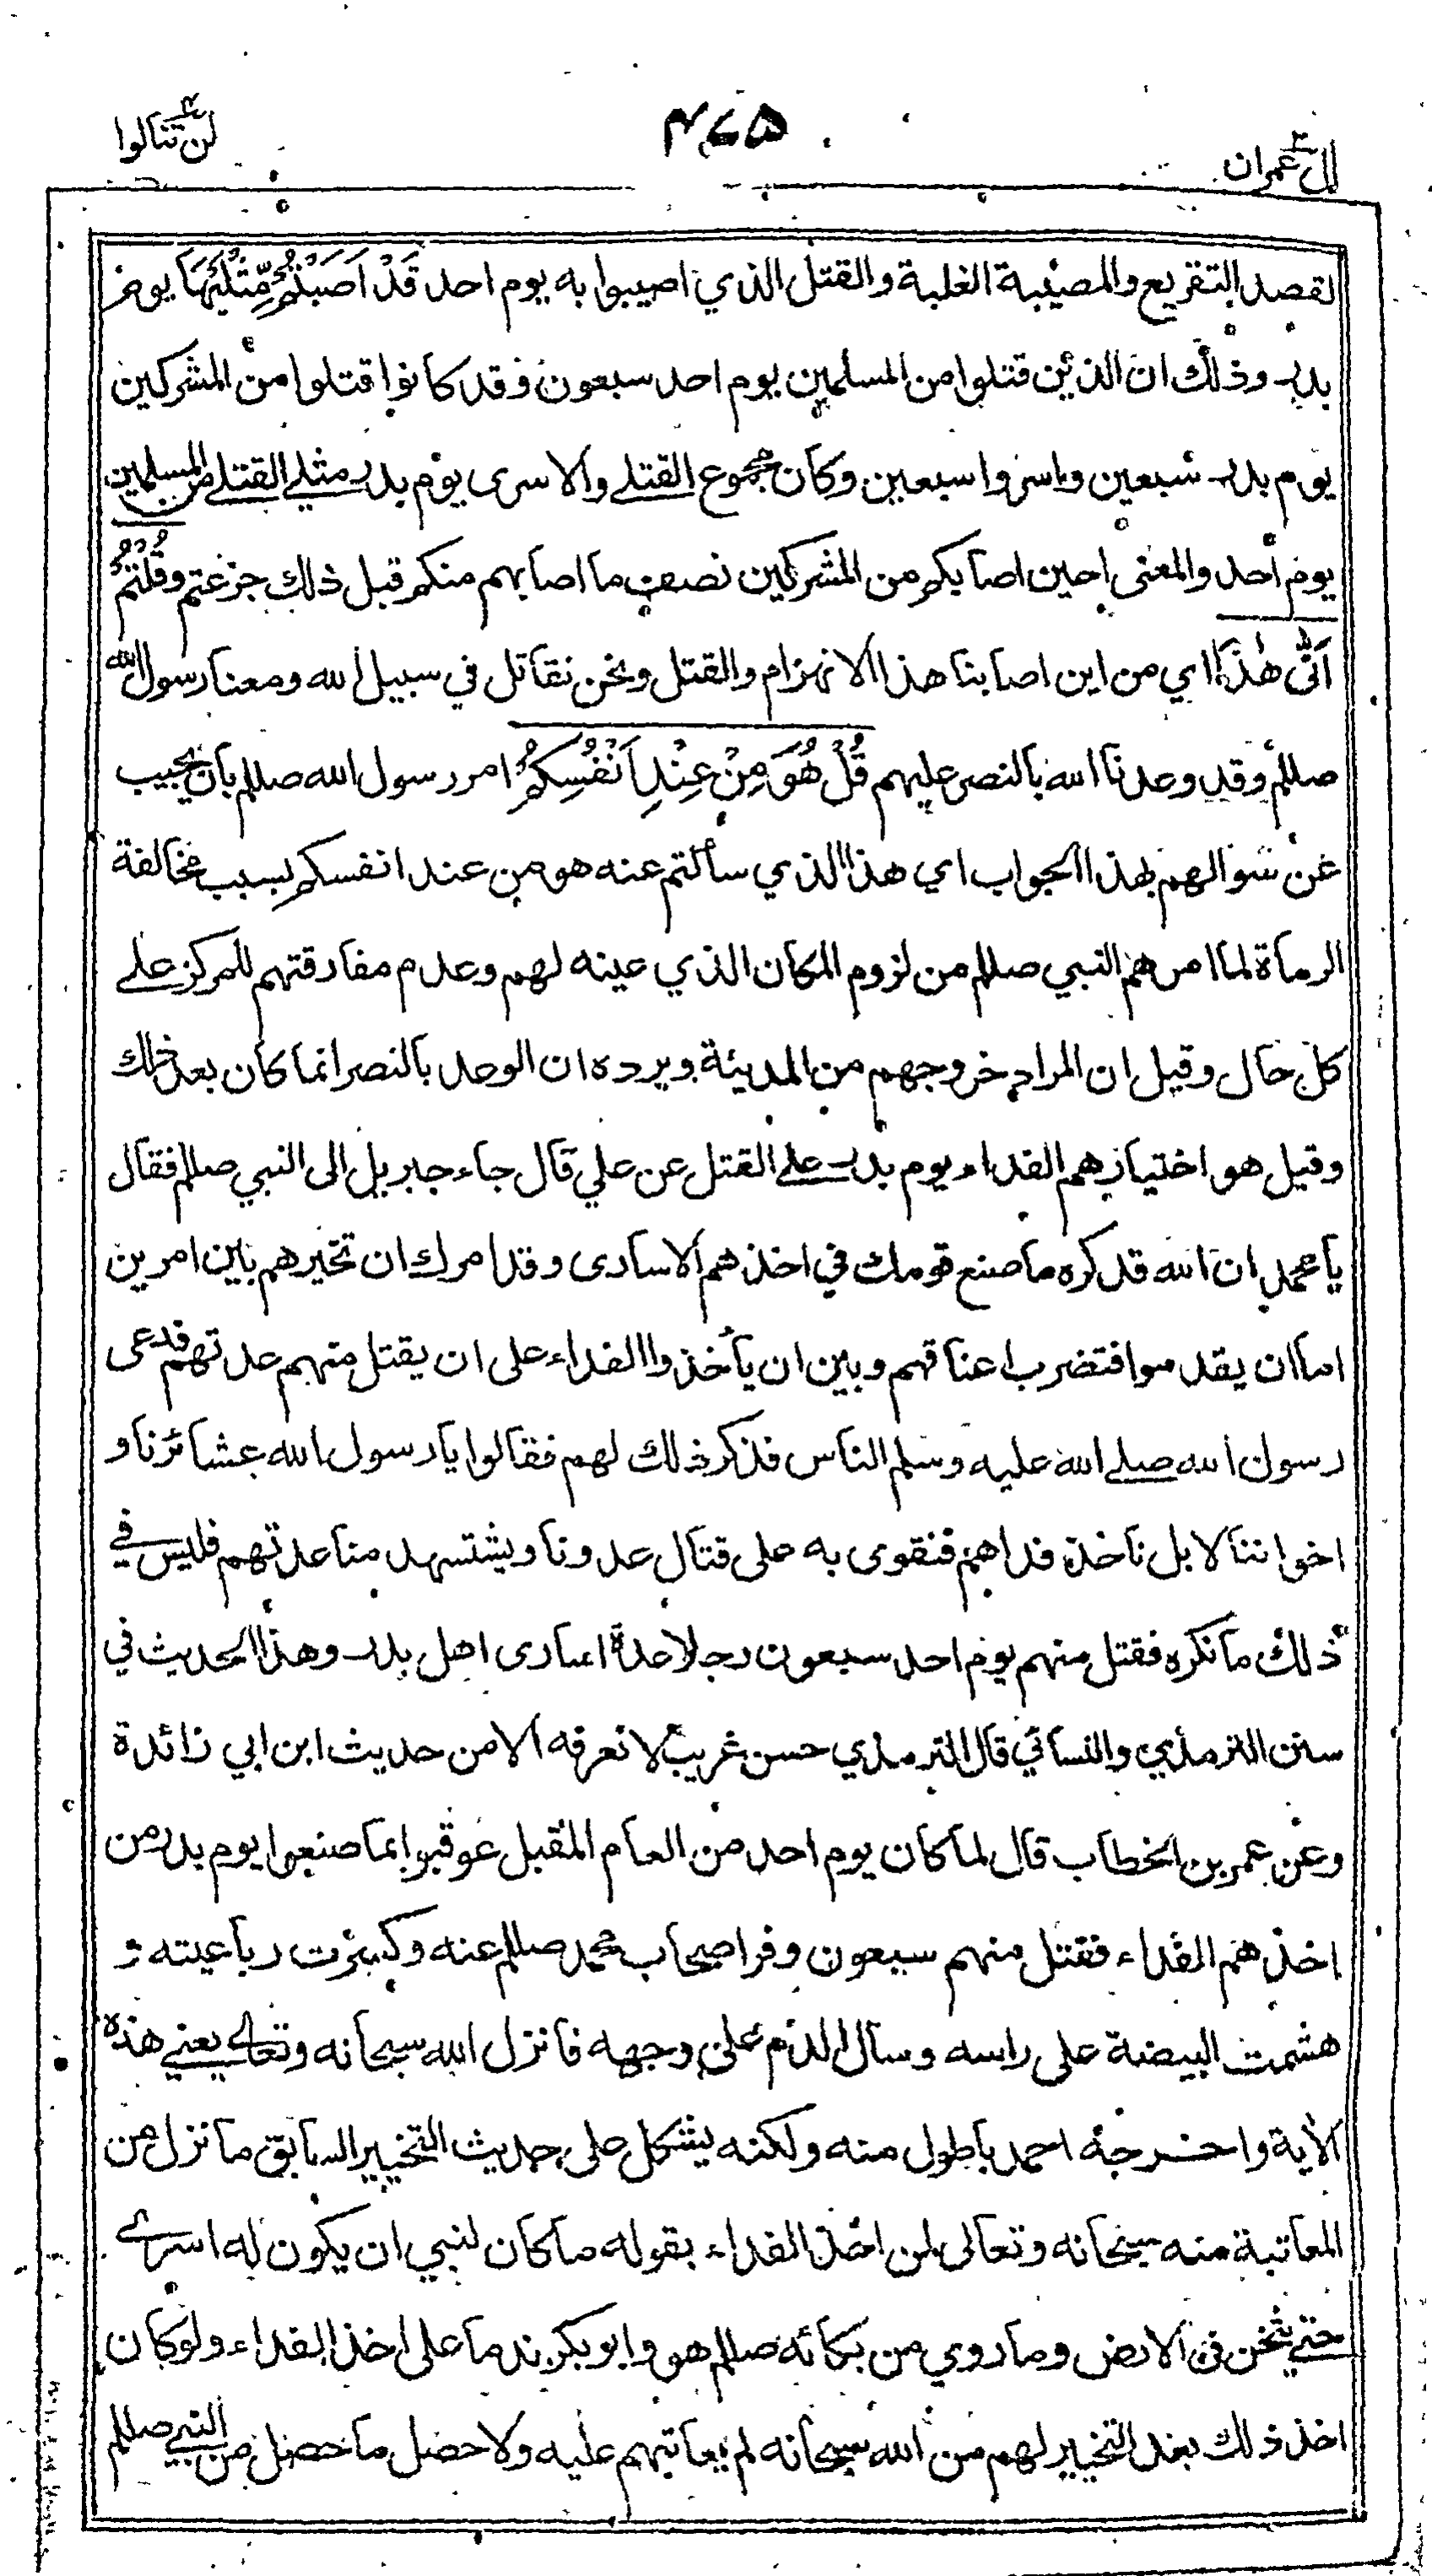 اٰل عمران ٣
٤٧٥
لن تنالوا ٤
لقصد التقريع والمصيبة الغلبة والقتل الذي اصيبوا به يوم احد قَدْ اَصَبْتُمْ مِّثْلَيْهَا يوم
بدر وذلك ان الذين قتلوا من المسلمين يوم احد سبعون وقد كانوا قتلوا من المشركين
يوم بدر سبعين واسروا سبعين وكان مجموع القتلے والاسرى يوم بدر مثلي القتلے من المسلمين
يوم احد والمعنى احين اصابكم من المشركين نصف ما اصابهم منكم قبل ذلك جزعتم وَقُلْتُمْ
اَنّٰى هٰذَا اي من اين اصابنا هذا الانهزام والقتل ونحن نقاتل في سبيل الله ومعنا رسول الله
صللم وقد وعدنا الله بالنصر عليهم قُلْ هُوَ مِنْ عِنْدِ اَنْفُسِكُمْ امر رسول الله صللم بان يجيب
عن سوالهم بهذا الجواب اي هذا الذي سألتم عنه هو من عند انفسكم بسبب مخالفة
الرماة لما امرهم النبي صللم من لزوم المكان الذي عينه لهم وعدم مفارقتهم للمركز علے
كل حال وقيل ان المراد خروجهم من المدينة ويرده ان الوعد بالنصر انما كان بعد ذلك
وقيل هو اختيارهم الفداء يوم بدر علے القتل عن علي قال جاء جبريل الى النبي صللم فقال
يا محمد ان الله قد كره ما صنع قومك في اخذهم الاسارى وقد امرك ان تخيرهم بين امرين
اما ان يقدموا فتضرب اعناقهم وبين ان يأخذوا الفداء على ان يقتل منهم عدتهم فدعى
رسول الله صلے الله عليه وسلم الناس فذكر ذلك لهم فقالوا يا رسول الله عشائرنا و
اخواننا لا بل ناخذ فداهم فنقوى به على قتال عدونا ويشتسهد منا عدتهم فليس في
ذلك ما نكره فقتل منهم يوم احد سبعون رجلا عدة اسارى اهل بدر وهذا الحديث في
سنن الترمذي والنسائي قال الترمذي حسن غريب لا نعرفه الا من حديث ابن ابي زائدة
وعن عمر بن الخطاب قال لما كان يوم احد من العام المقبل عوقبوا بما صنعوا يوم بدر من
اخذهم الفداء فقتل منهم سبعون وفر اصحاب محمد صللم عنه وكسرت رباعيته و
هشمت البيضة على راسه وسال الدم على وجهه فانزل الله سبحانه وتعالے يعني هذه
الاية واخرجه احمد باطول منه ولكنه يشكل على حديث التخيير السابق ما نزل من
المعاتبة منه سبحانه وتعالى لمن اخذ الفداء بقوله ما كان لنبي ان يكون له اسرے
حتے يثخن في الارض وما روي من بكائه صللم هو وابو بكر ندما على اخذ الفداء ولو كان
اخذ ذلك بعد التخيير لهم من الله سبحانه لم يعاتبهم عليه ولا حصل ما حصل من النبي صللم